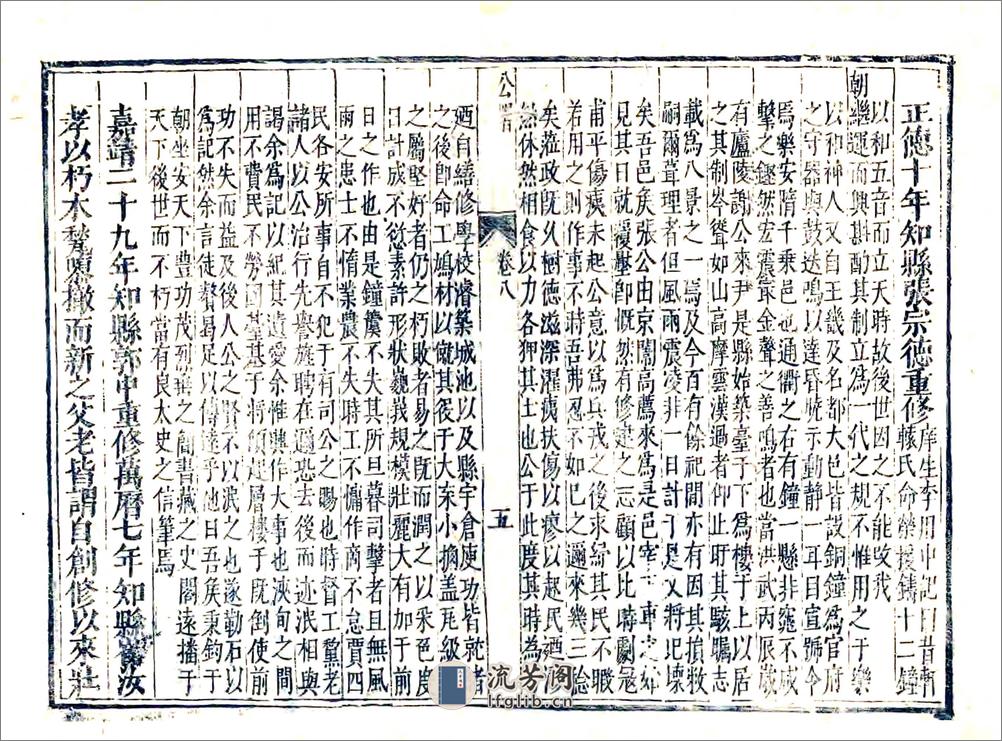 正德十年知縣張宗德重修庠生李用中記曰昔軒轅氏命榮援鑄十二鐘
以和五音而立天時故後世因之不能改我
朝繼運而興斟酌其制立為一代之規不惟用之于樂
以和神人又自王畿及名都大邑皆設銅鐘為官府
之守器與鼓迭鳴以達昏曉示動靜一耳目宣號令
焉樂安隋千乘邑也通衢之右有鐘一懸非窕不槭
擊之鏗然宏震聲金聲之善鳴者也當洪武丙辰歲
有廬陵謝公來尹是縣始築臺于下為樓于上以居
之其制岑聳如山高摩雲漢過者仰止旴其駭矚
載為八景之一焉及今百有餘祀亦有因其損敗
嗣爾葺理者但風雨震凌非一日計于是又將圮壞
矣吾邑矦張公由京闈高薦來為是邑宰下車之始
見其日就覆墜即慨然有修建之志顧以比時劇冦
甫平傷痍未起公意以為兵戎之後求綿其民不暇
若用之則作事不時吾弗忍不如已之邇來幾三稔
矣蒞政旣久樹德滋深濯痍扶傷以瘳以廖以起
然休然相食以力各狎其土也公于此度其時為
公署
卷八
五
廼自繕修學校濬築城池以及縣宇倉庾功皆就者
之後卽命工鳩材以僦其役于大東小摛盖瓦級
之屬堅好者仍之朽敗者易之旣而潤之以采色度
日計成不愆素許形狀巍峩規模壯麗大有加于前
日之作也由是鐘簴不失其所旦暮司擊者且無風
雨之患士不惰業農不失時工不慵作商不怠賈四
民各安所事自不犯于有司公之賜也時督工黨老
諸人以公治行先譽旌聘在邇恐去後而迹泯相與
謁余為記以紀其遺愛余惟興作大事也浹旬之間
用不費民不勞固臺基于將傾起層樓于旣倒使
功不失而益及後人公之賢不以泯之也遂勒石以
為記然余言徒贅曷足以傳達乎他日吾矦秉鈞于
朝坐安天下豊功茂烈載之簡書藏之史閣遠播于
天下後世而不朽當有良太史之信筆焉
嘉靖二十九年知縣郭中重修萬曆七年知縣汝
孝以朽木甃磚撤而新之父老皆謂自創修以來壯
流芳阁
lfglib.cn